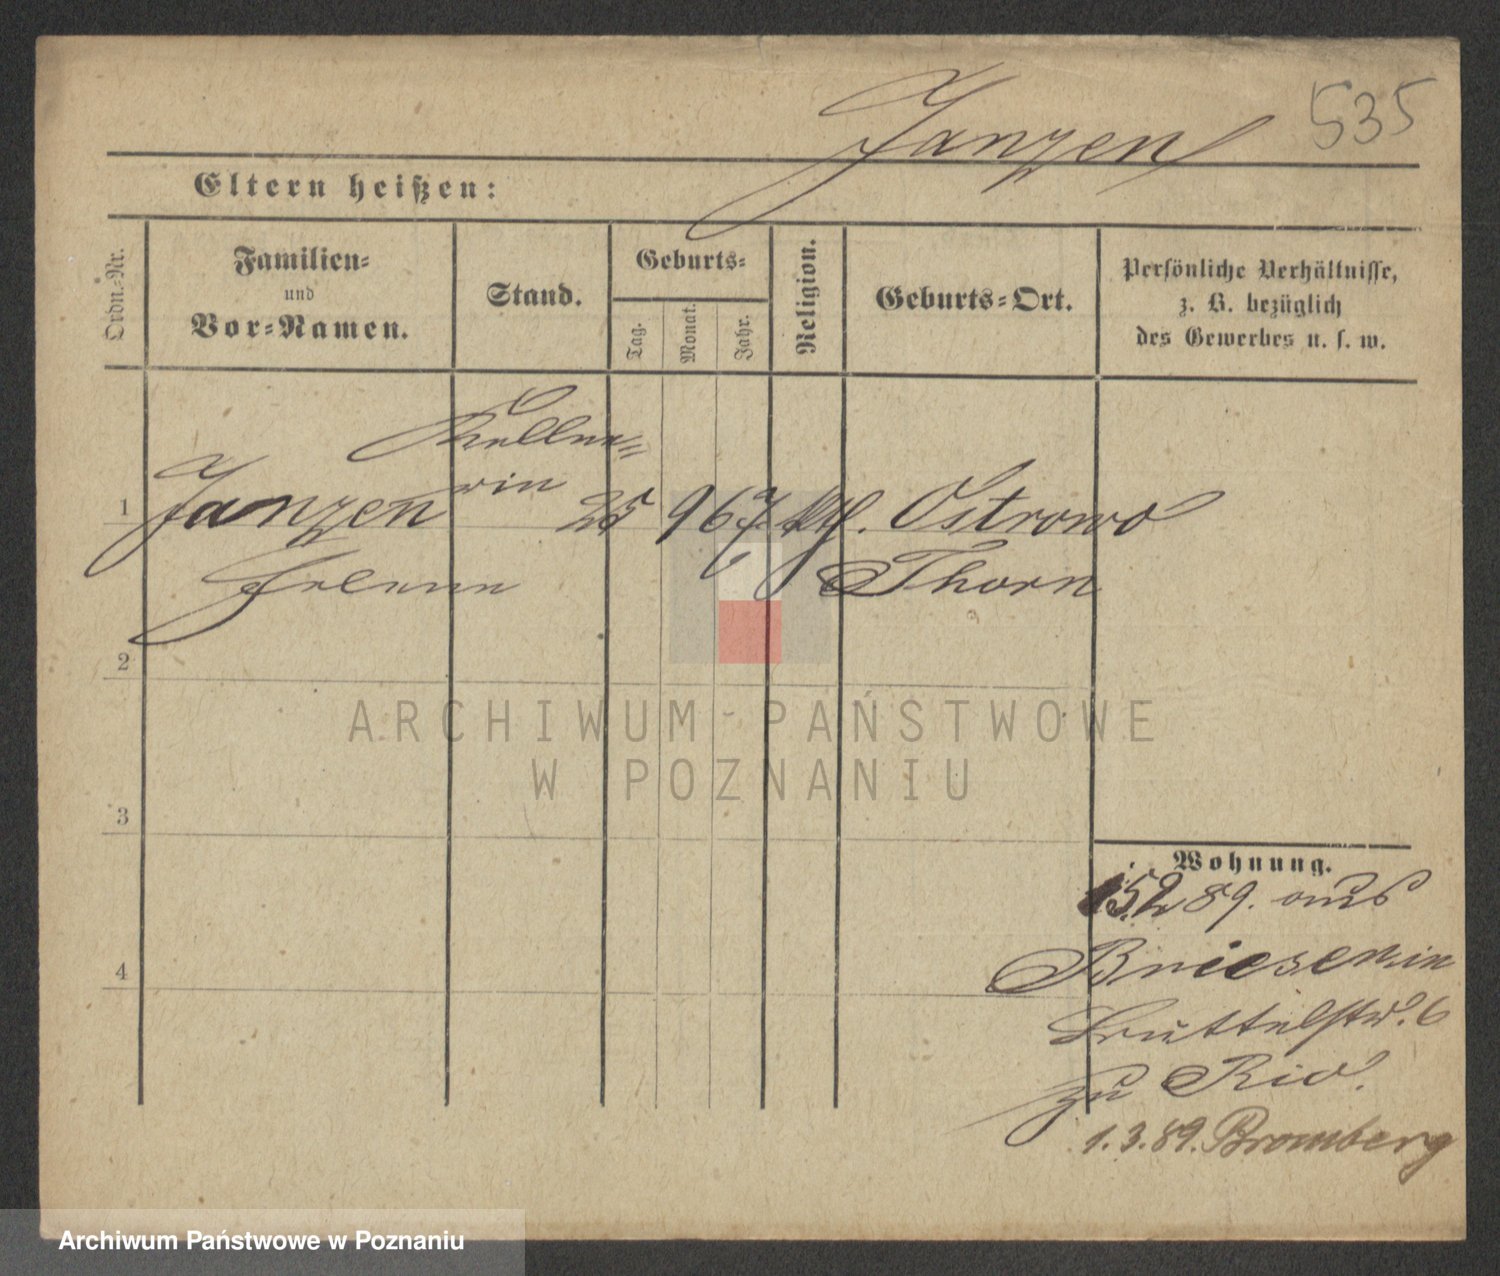 Janzen
535
Eltern heißen:
Ordn.-Nr.
Familien-
und
Vor-Namen.
Stand.
Geburts-
Tag.
Monat.
Jahr.
Religion.
Geburts-Ort.
Persönliche Verhältnisse,
z. B. bezüglich
des Gewerbes u. s. w.
Kellne-
rin
1
Janzen
25 9 67 kth. Ostrowo
Helene
Thorn
2
ARCHIWUM PAŃSTWOWE
W POZNANIU
3
Wohnung.
15.2 89. aus
Briesen in
6
zu Rio.
4
1.3.89. Bromberg
Archiwum Państwowe w Poznaniu